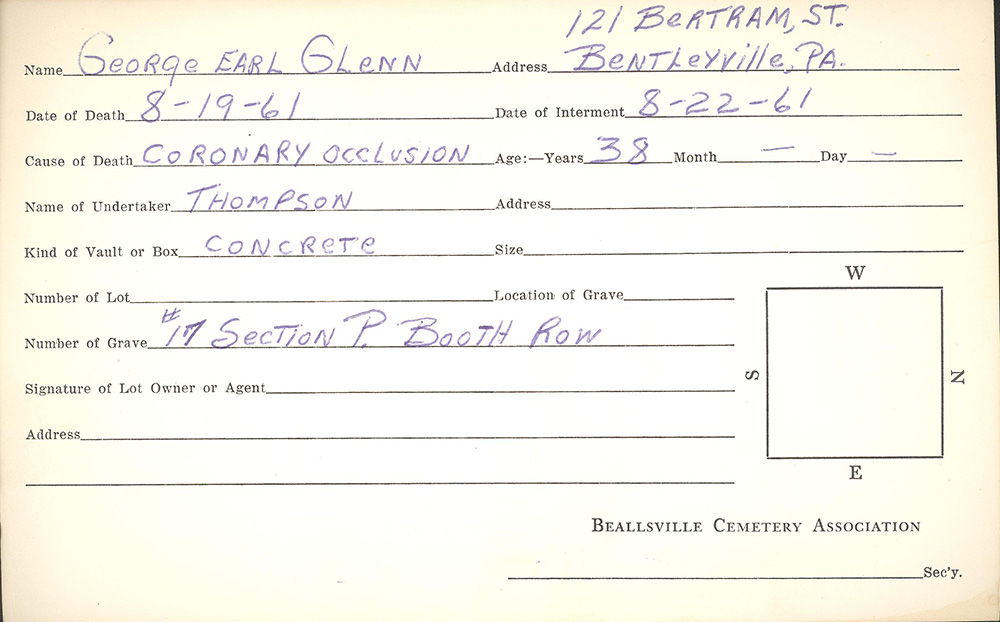 121 BERTRAM, ST.
Name George EARL GLENN Address BENTLEYVILLE, PA.
Date of Death 8-19-61 Date of Interment 8-22-61
Cause of Death CORONARY OCCLUSION Age:—Years 38 Month — Day —
Name of Undertaker THOMPSON Address
Kind of Vault or Box CONCRETE Size
Number of Lot Location of Grave
Number of Grave #17 SECTION P. BOOTH ROW
Signature of Lot Owner or Agent
Address
W
S
N
E
BEALLSVILLE CEMETERY ASSOCIATION
Sec'y.